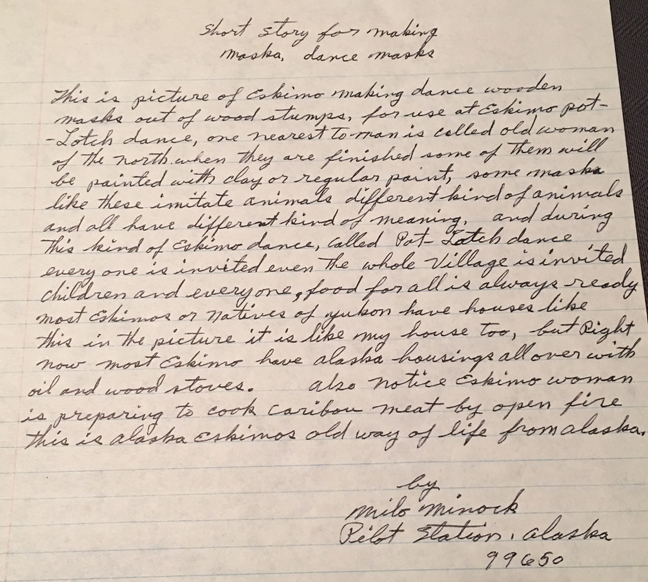 Short story for making
maska, dance masks
This is picture of Eskimo making dance wooden
masks out of wood stumps, for use at Eskimo pot-
-Lotch dance, one nearest to man is called old woman
of the north. when they are finished some of them will
be painted with clay or regular paint, some masks
like these imitate animals different kind of animals
and all have different kind of meaning. and during
This kind of Eskimo dance, called Pot-Latch dance
every one is invited even the whole Village is invited
children and everyone, food for all is always ready
most Eskimos or Natives of yukon have houses like
this in the picture it is like my house too, but Right
now most Eskimo have alaska housings all over with
oil and wood stoves. also notice Eskimo woman
is preparing to cook caribou meat by open fire
this is alaska Eskimos old way of life from alaska.
by
Milo Minock
Pilot Station, alaska
99650